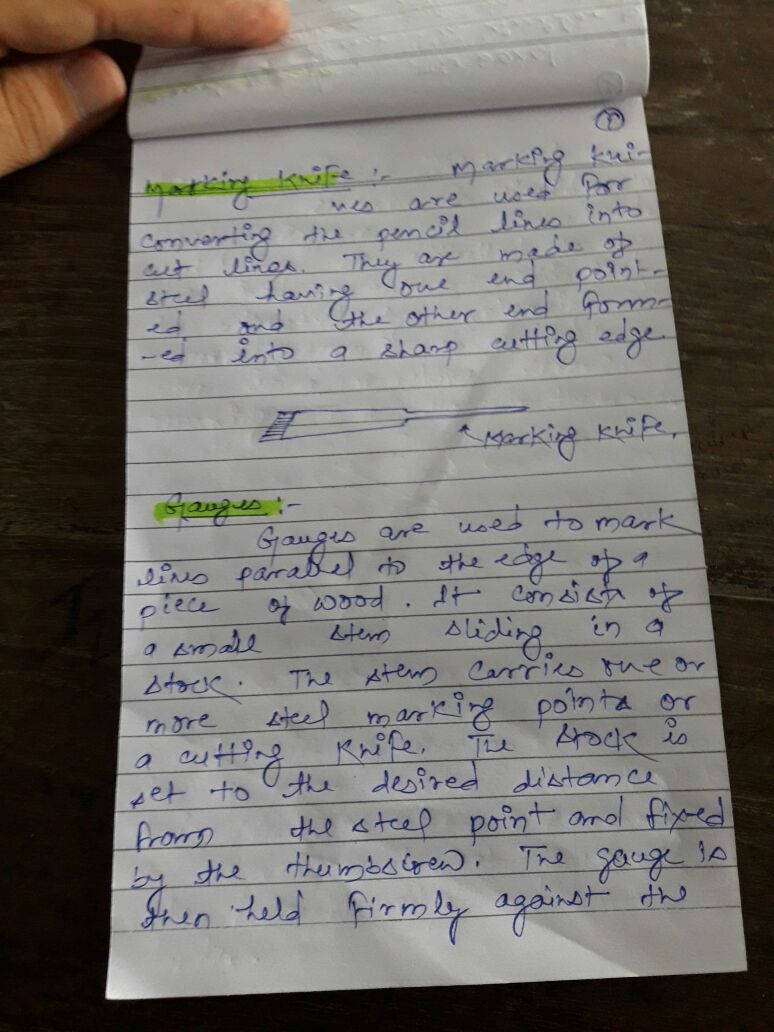 Marking Knife :- Marking kni-
ves are used for
converting the pencil lines into
cut lines. They are made of
steel having one end point-
ed and the other end form-
-ed into a sharp cutting edge.
Marking Knife.
Gauges :-
Gauges are used to mark
lines parallel to the edge of a
piece of wood. It consists of
a small stem sliding in a
stock. The stem carries one or
more steel marking points or
a cutting knife. The stock is
set to the desired distance
from the steel point and fixed
by the thumbscrew. The gauge is
then held firmly against the